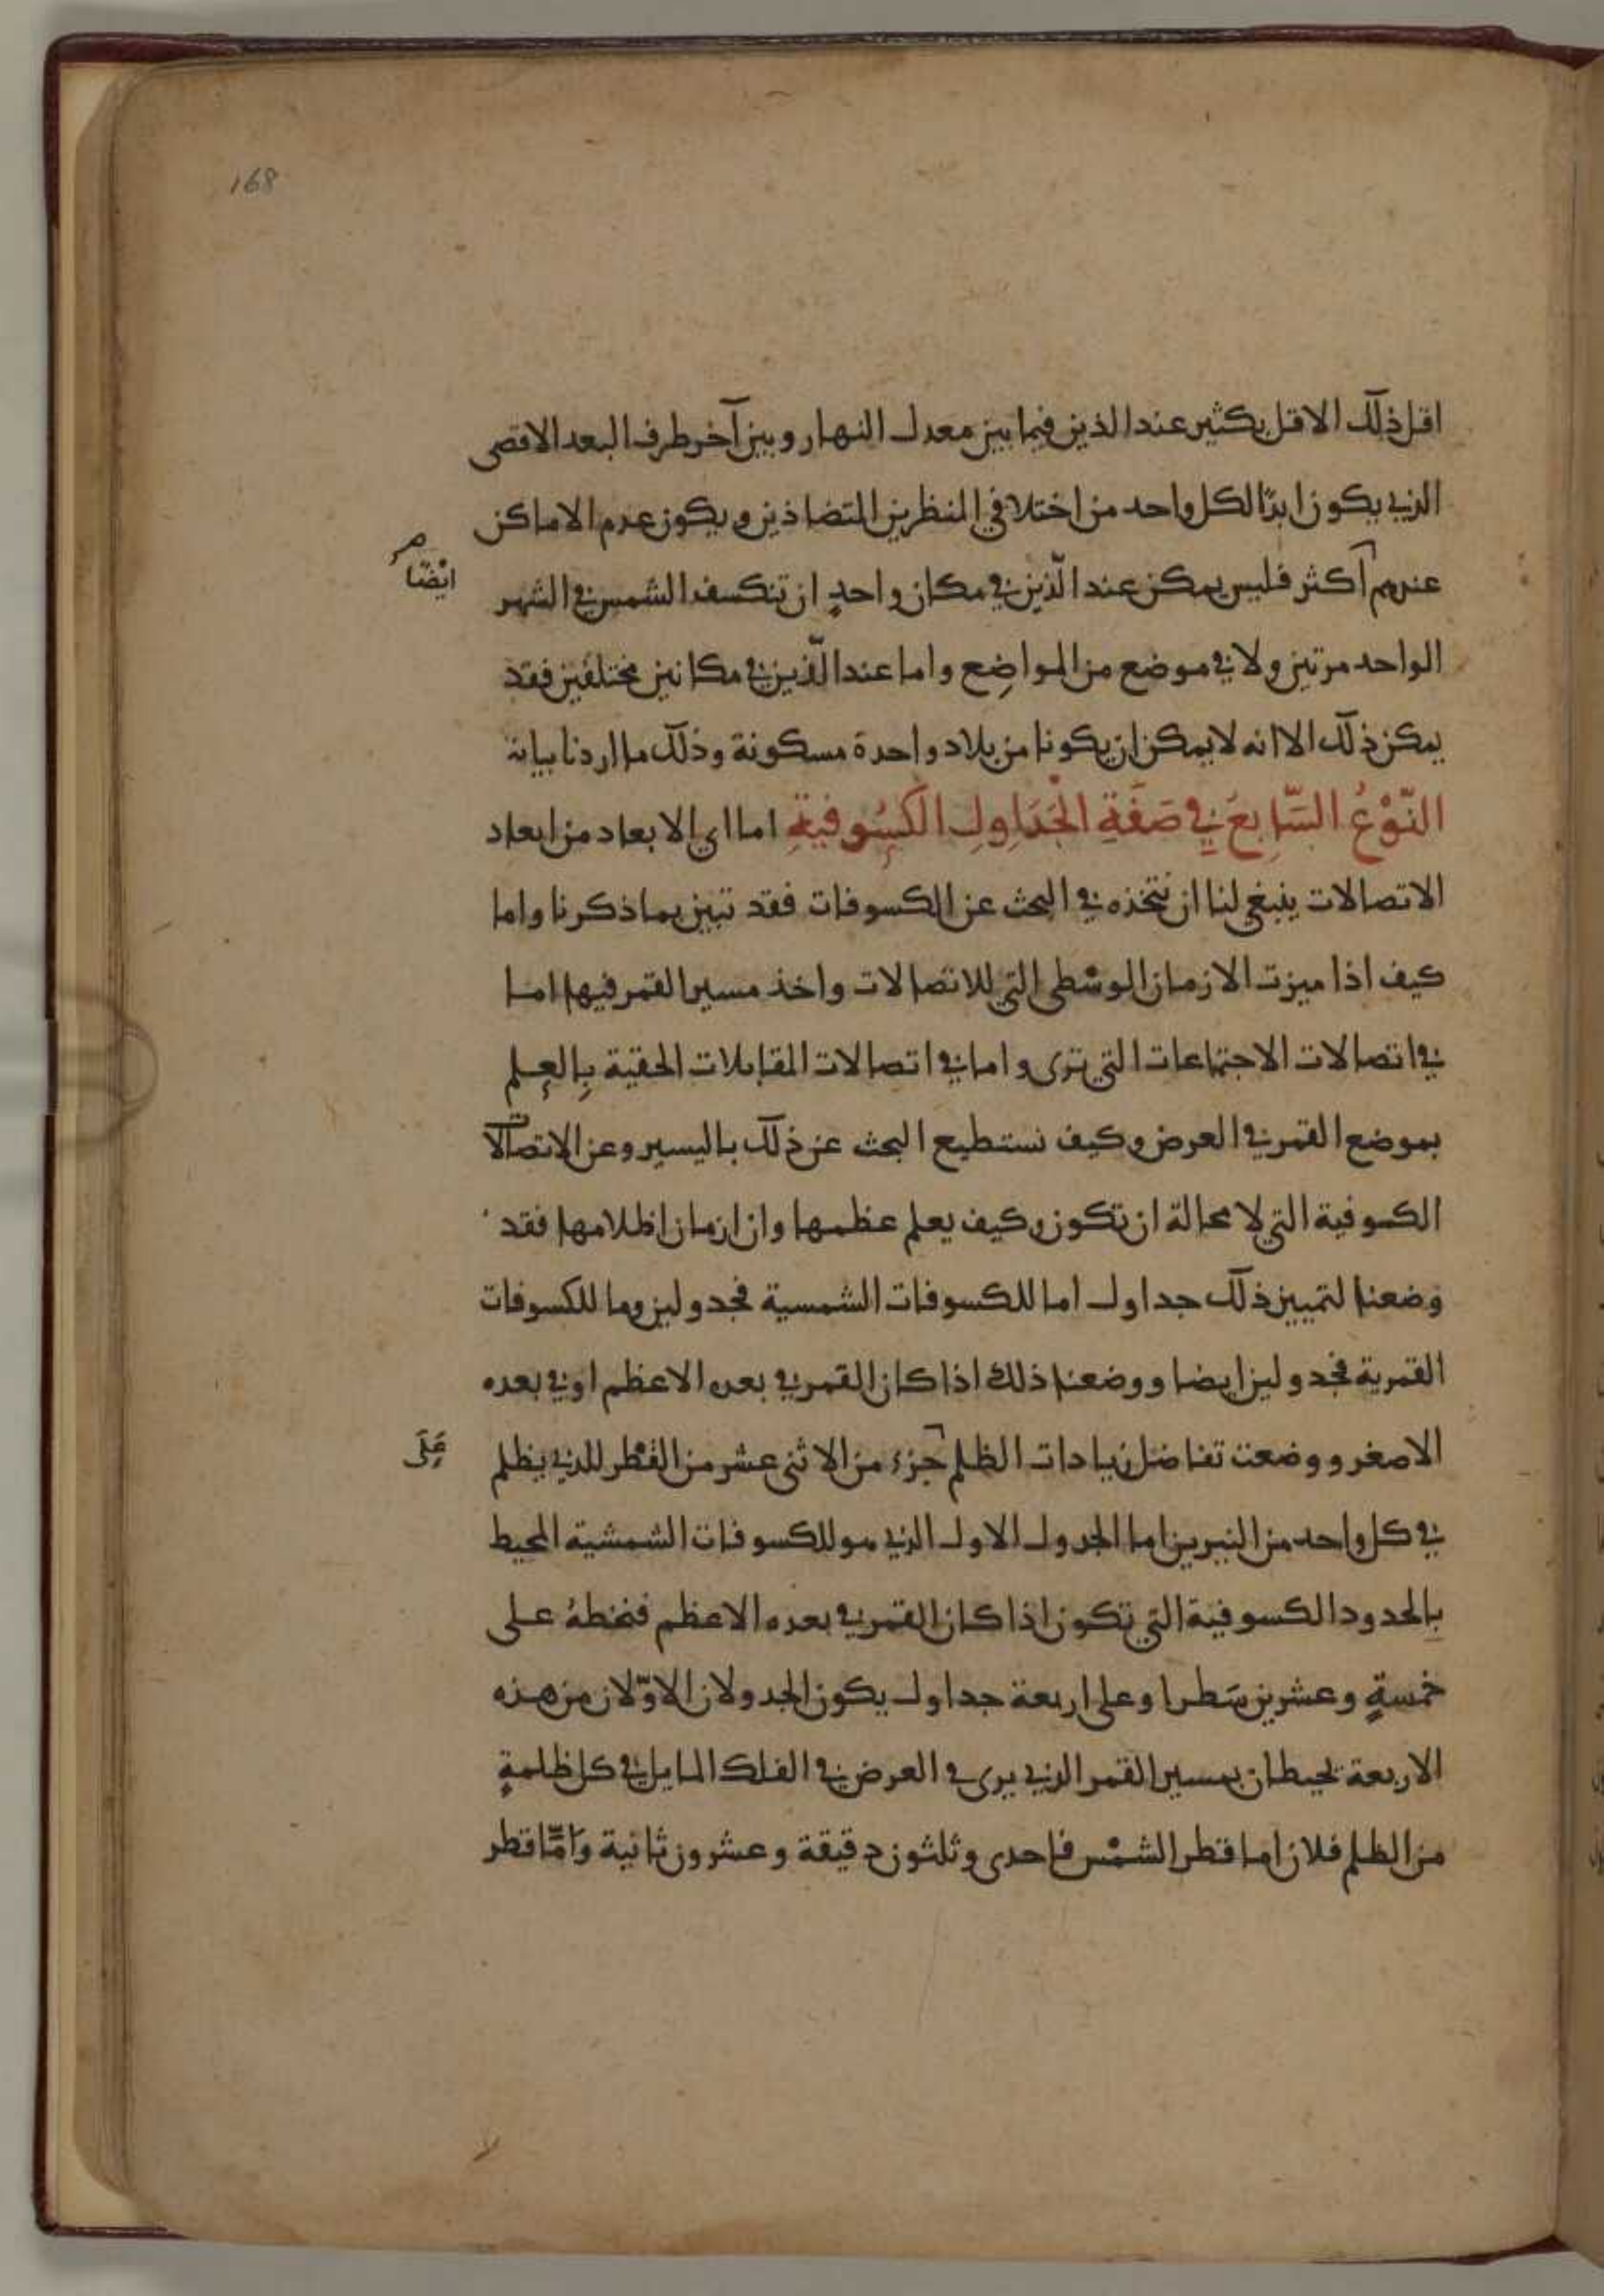 168
اقل ذلك الاقل بكثير عند الذين فيما بين معدل النهار وبين آخر طرف البعد الاقصى
الذي يكون ابدًا لكل واحد من اختلافي المنظرين المتضاذين ويكون عدم الاماكن
عندهم اكثر فليس يمكن عند الّذين في مكان واحدٍ ان تنكسف الشمس في الشهر
ايْضًا صح
الواحد مرتين ولا في موضع من المواضِع واما عند الّذين في مكانين مختلفين فقد
يمكن ذلك الا انه لا يمكن ان يكونا من بلاد واحدة مسكونة وذلك ما اردنا بيانه
النّوْعُ السَّابِعَ في صَفَةِ الْجَدَاوِلِ الكَسُوفيةِ اما اي الابعاد من ابعاد
الاتصالات ينبغي لنا ان نتخذه في البحث عن الكسوفات فقد تبين بما ذكرنا واما
كيف اذا ميزت الازمان الوسْطى التي للاتصالات واخذ مسير القمر فيها اما
في اتصالات الاجتماعات التي ترى واما في اتصالات المقابلات الحقية بِالعِلم
بموضع القمر في العرض وكيف نستطيع البحث عن ذلك باليسير وعن الاتصالات
الكسوفية التي لا محالة ان تكون وكيف يعلم عظمها وان ازمان اظلامها فقد
وضعنا لتمييز ذلك جداول اما للكسوفات الشمسية فجدولين وما للكسوفات
القمرية فجدولين ايضا ووضعنا ذلك اذا كان القمر في بعده الاعظم او في بعده
الاصغر ووضعت تفاضل زيادات الظلم جزء من الاثنى عشر من القُطْر للذي يظلم
عَلَى
في كل واحد من النيرين اما الجدول الاول الذي هو للكسوفات الشمشية المحيط
بالحدود الكسوفية التي تكون اذا كان القمر في بعده الاعظم فنخطهُ على
خمسةٍ وعشرين سَطرا وعلى اربعة جداول يكون الجدولان الاوّلان من هذه
الاربعة يحيطان بمسير القمر الذي يرى في العرض في الفلك المايل في كل ظلمةٍ
من الظلم فلان اما قطر الشمْس فاحدى وثلثون دقيقة وعشرون ثانية وَامَّا قطر